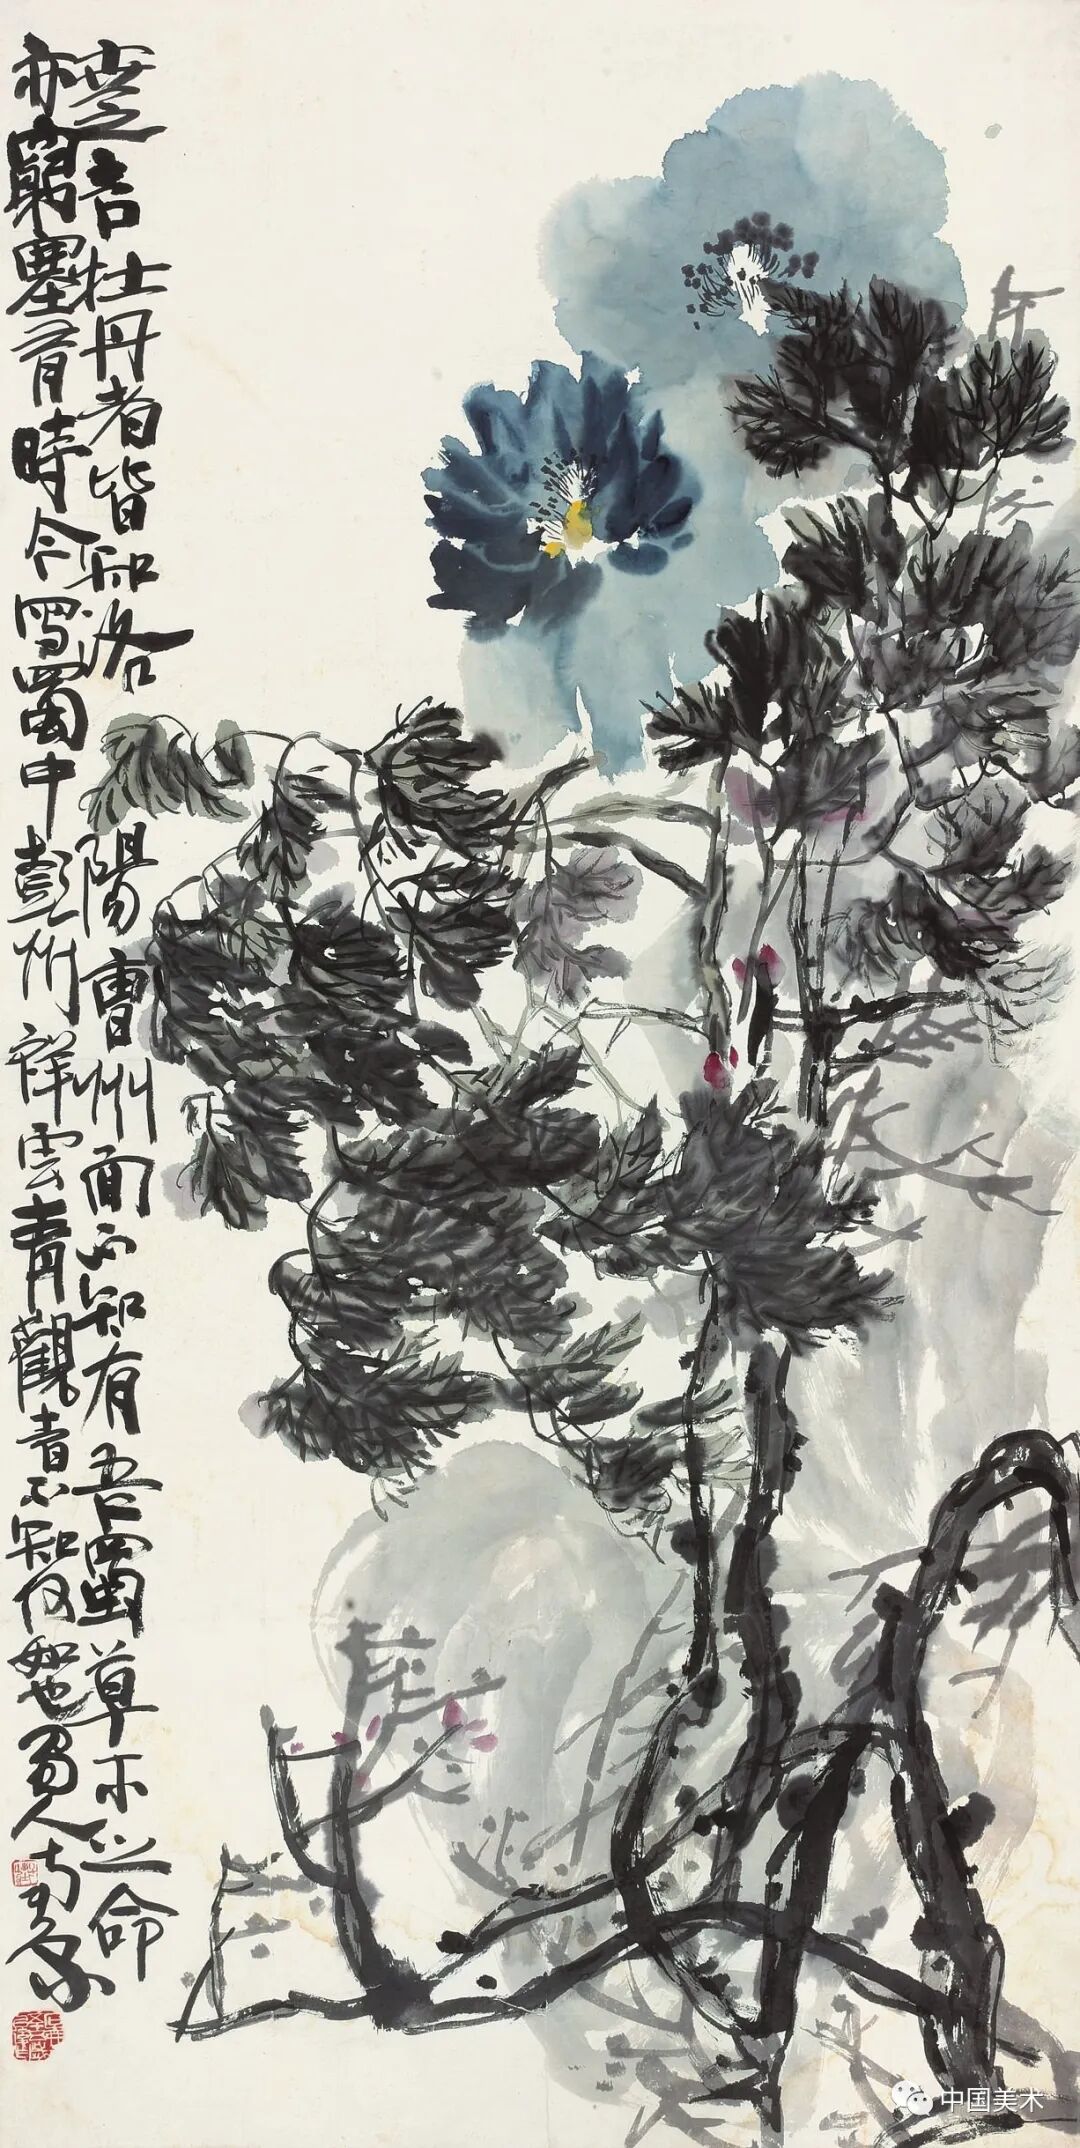 世之言牡丹者皆知洛陽曹州而不知有吾蜀草木之命
亦窮塞有時今寫蜀中彭州祥雲青觀者不知何如也蜀人
中国美术